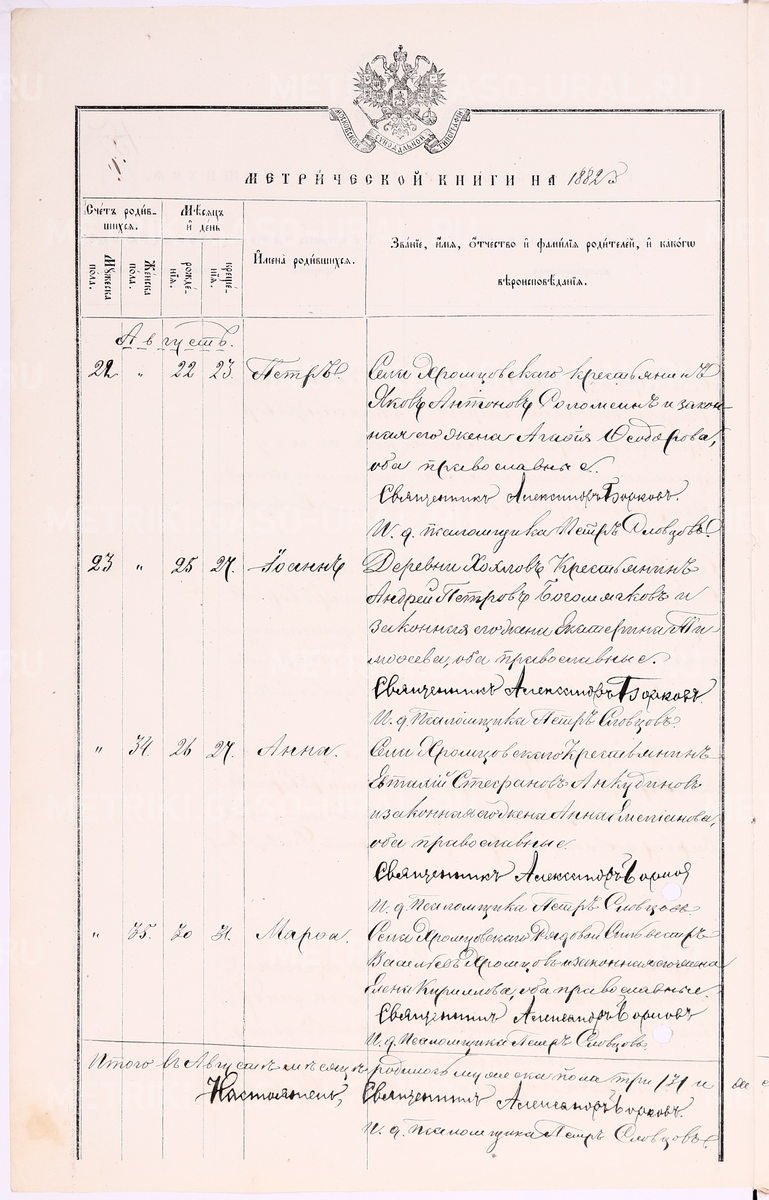 МОСКОВСКОЙ СѴНОДАЛЬНОЙ ТИПОГРАФІИ
МЕТРИ́ЧЕСКОЙ КНИ́ГИ НА 1882
Сче́тъ роди́вшихся.
Мѣ́сяцъ и де́нь
Имена̀ роди́вшихся.
Зва́нїе, и́мя, о́тчество и фами́лїя роди́телей, и како́гѡ вѣроисповѣ́данїя.
Мꙋ́жеска по́ла.
Же́нска по́ла.
рожде́нїя.
креще́нїя.
Августъ.
22 " 22 23. Петръ. Села Хромцовскаго крестьянинъ
Яковъ Антоновъ Соломеинъ и закон
ная его жена Агаѳія Ѳеодорова,
оба православные.
Священникъ Александръ Борковъ.
И. д. псаломщика Петръ Словцовъ.
23 " 25 27. Іоаннъ Деревни Хохловъ Крестьянинъ
Андрей Петровъ Богомягковъ и
законная его жена Екатерина Ти
моѳеева, оба православные.
Священникъ Александръ Борковъ.
И. д. Псаломщика Петръ Словцовъ.
" 34. 26 27. Анна. Села Хромцовскаго Крестьянинъ
Евтихій Стефановъ Анкудиновъ
и законная его жена Анна Емелианова,
оба православные.
Священникъ Александръ
И. д. Псаломщика Петръ Словцовъ
" 35. 30 31. Марѳа. Села Хромцовскаго Рядовой Сильвестръ
Васильевъ Хромцовъ и законная его жена
Елена Кириллова, оба православные.
Священникъ Александръ Борковъ
И. д. Псаломщика Петръ Словцовъ.
Итого въ Августѣ мѣсяцѣ родилось мужеска пола три /3/ и
Настоятель, Священникъ Александръ Борковъ.
И. д. псаломщика Петръ Словцовъ.